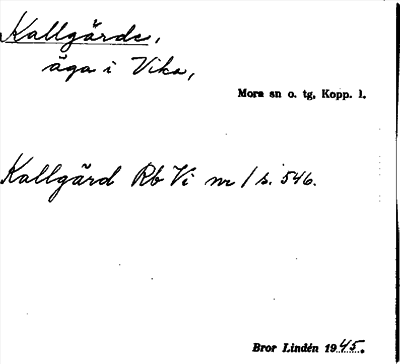 Kallgärde,
äga i Vika,
Mora sn o. tg, Kopp. l.
Kallgärd Rb Vi nr 1 s. 546.
Bror Lindén 1945.